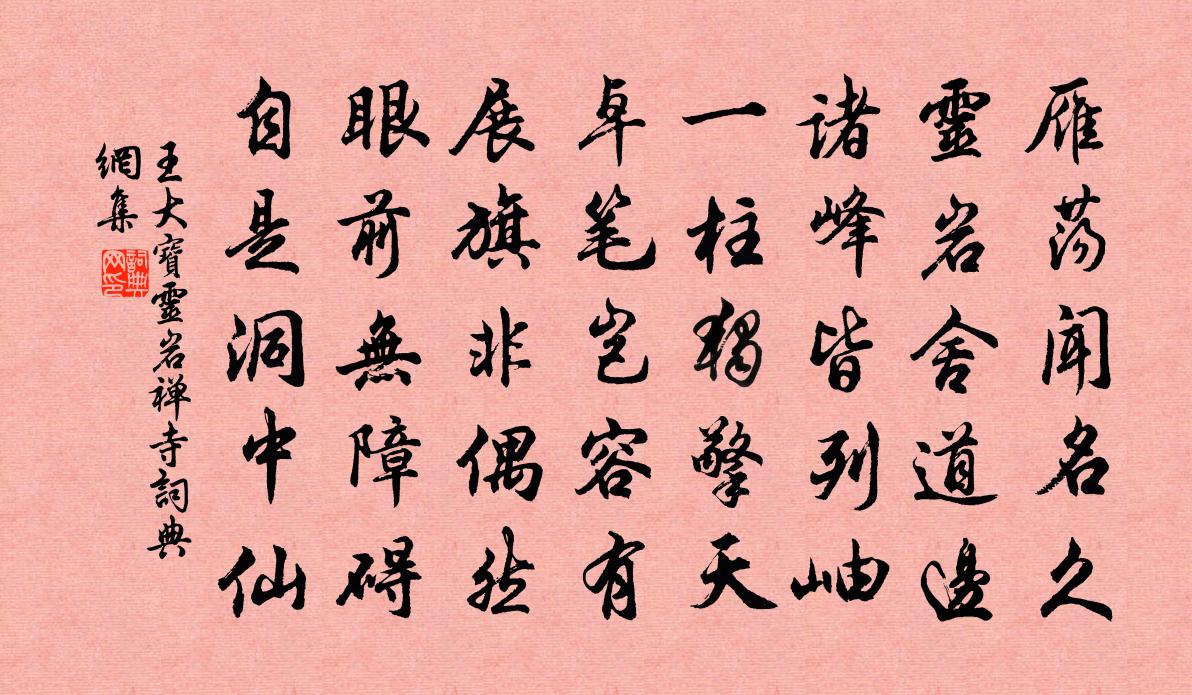 雁荡闻名久
靈岩舍道邊
诸峰皆列岫
一柱独擎天
卓笔岂容有
展旗非偶然
眼前無障碍
自是洞中仙
王大寶靈岩禅寺詞典
網集
詞典
网印